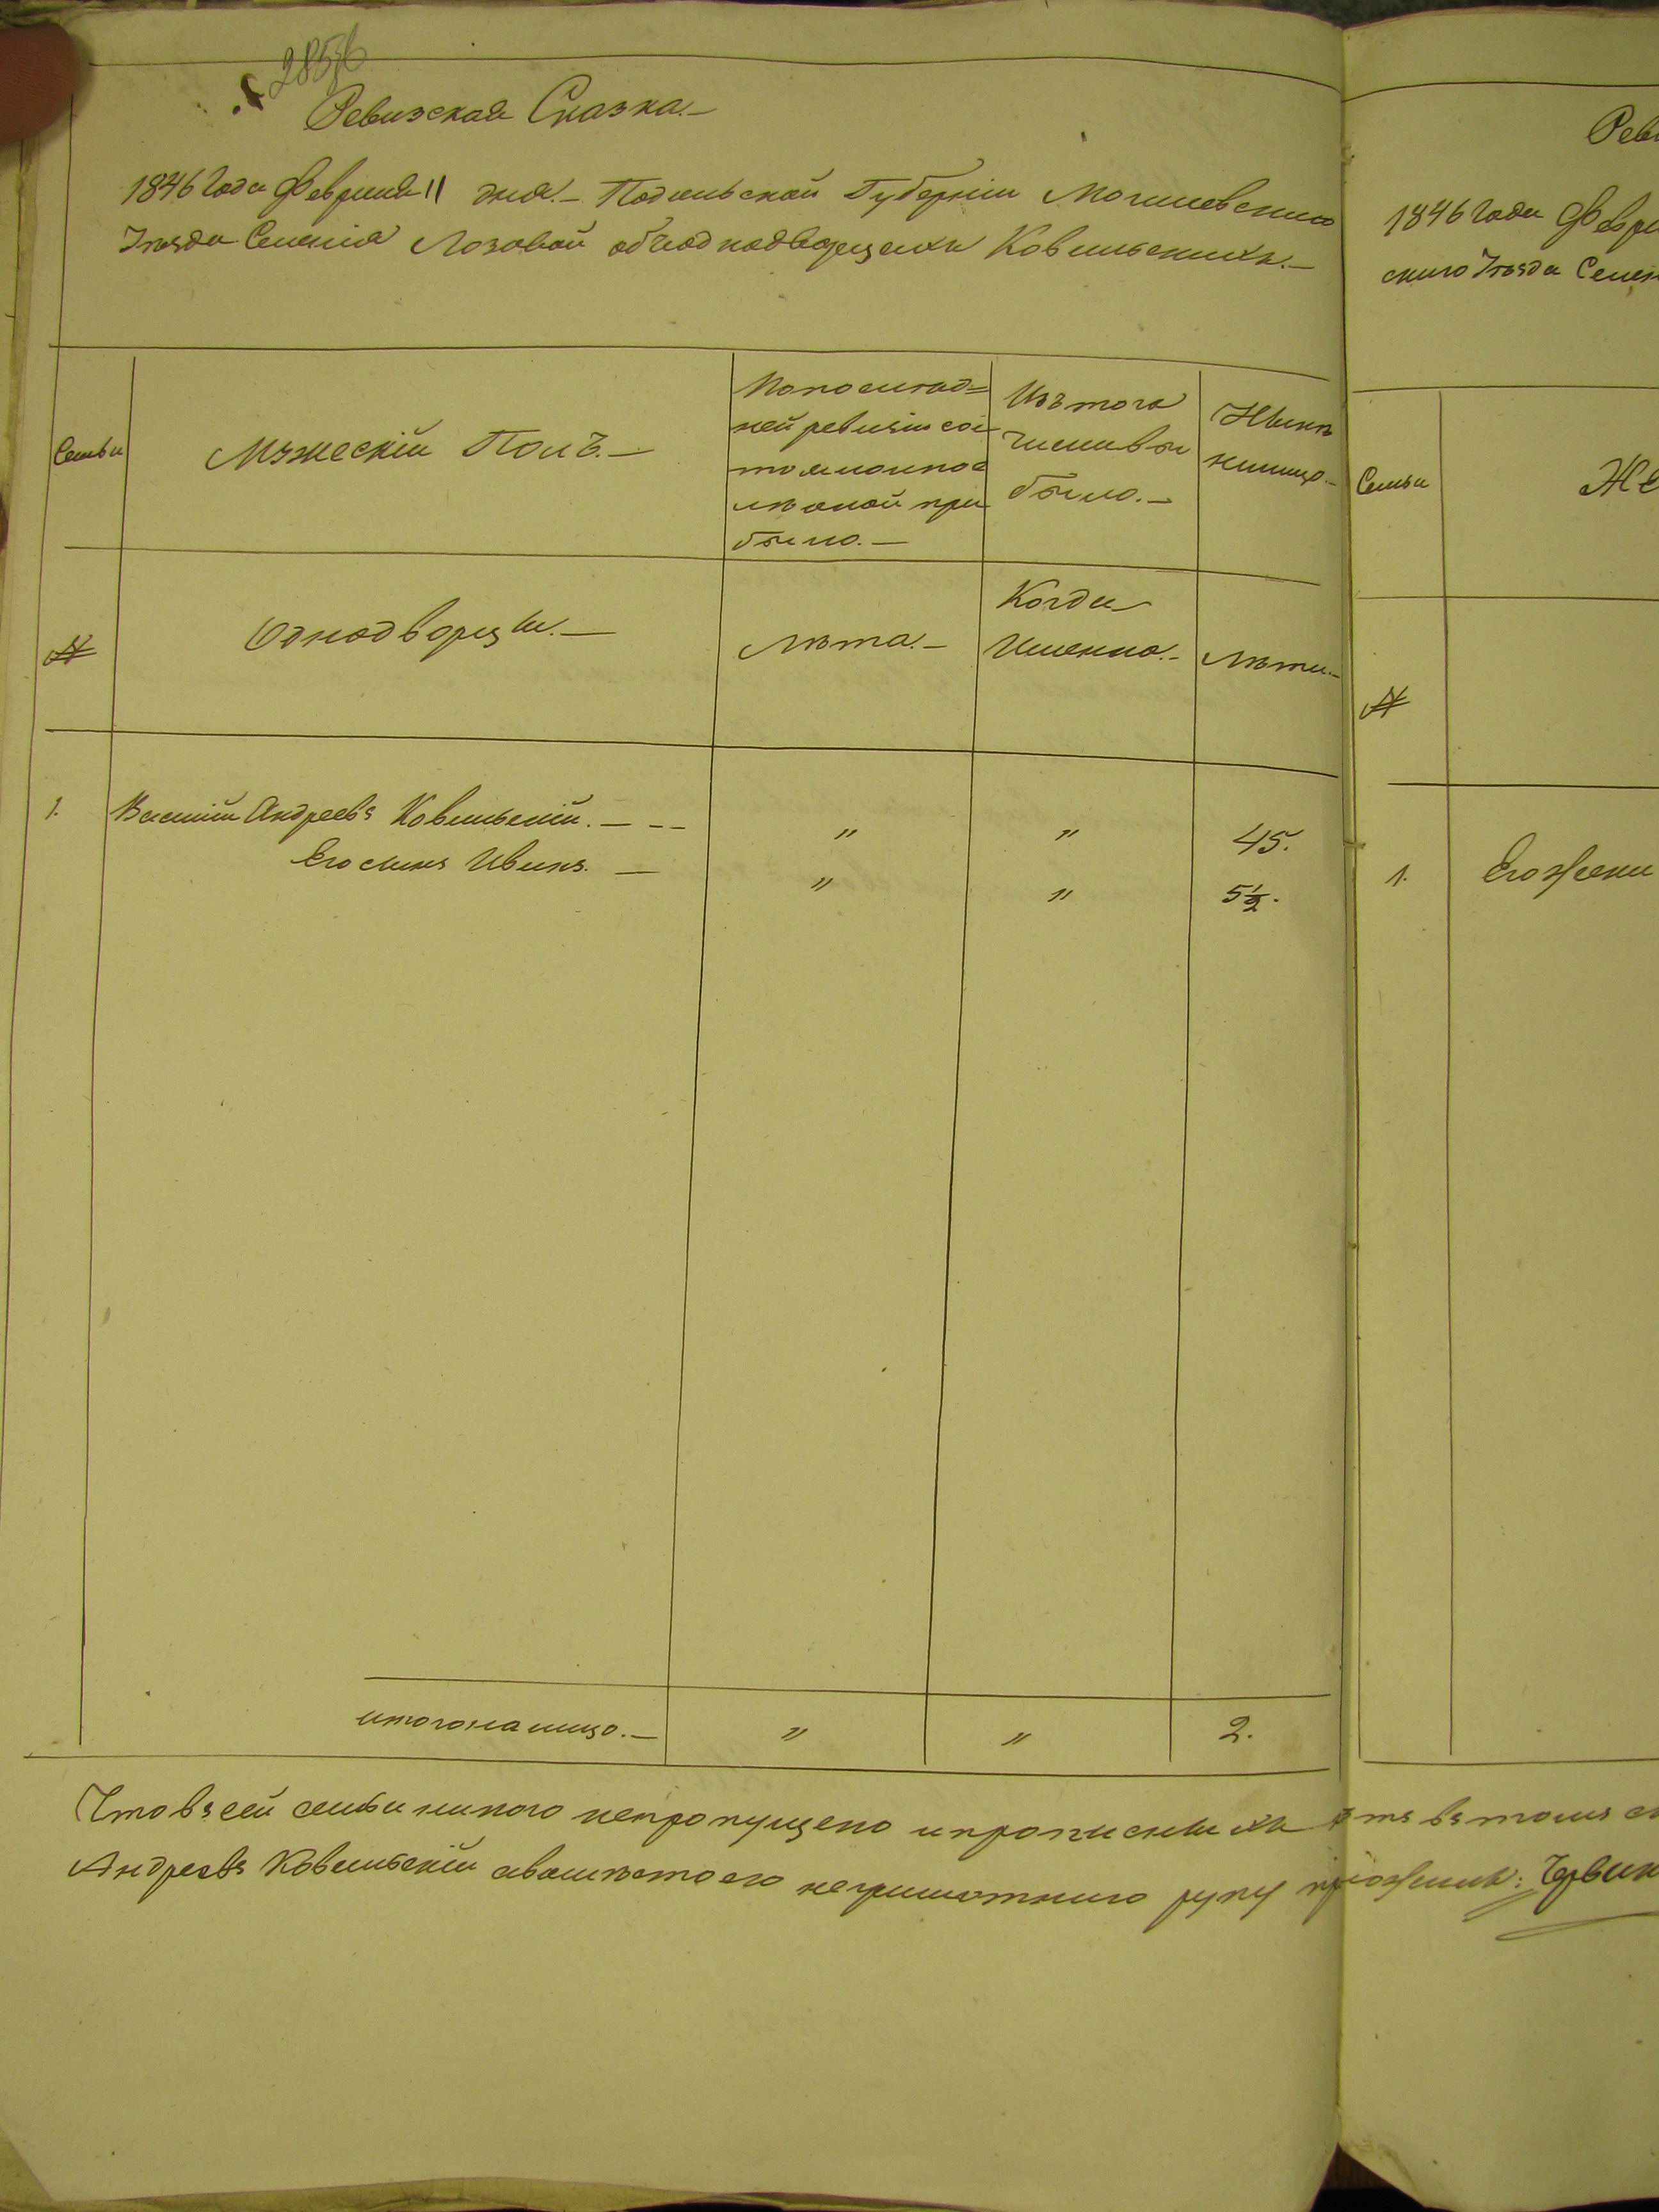 Ревизская Сказка.—
1846 Года Февраля 11 дня.— Подольской Губерніи Могилевскаго
Уезда Селенія Лозовой объ однодворцахъ Ковальскихъ.—
Семьи
Мужескій Полъ.—
По послед=
ней ревизіи со
прибыло.—
Изъ того
числа вы
было.—
Нынѣ
на лицо.—
№
Однодворцы.—
Лѣта.—
Когда
Именно.—
Лѣта.—
1. Василій Андреевъ Ковальскій. — — — " " 45.
Его сынъ Иванъ. — " " 5½.
итого на лицо.— " " 2.
Что въ сей семьи никого не пропущено и прописныхъ нѣтъ въ томъ
Андреевъ Ковальскій а вмѣсто его неграмотнаго руку приложилъ:
Реви
1846 Года Февра
скаго Уезда Селен
Семьи
Же
№
1. Его жена